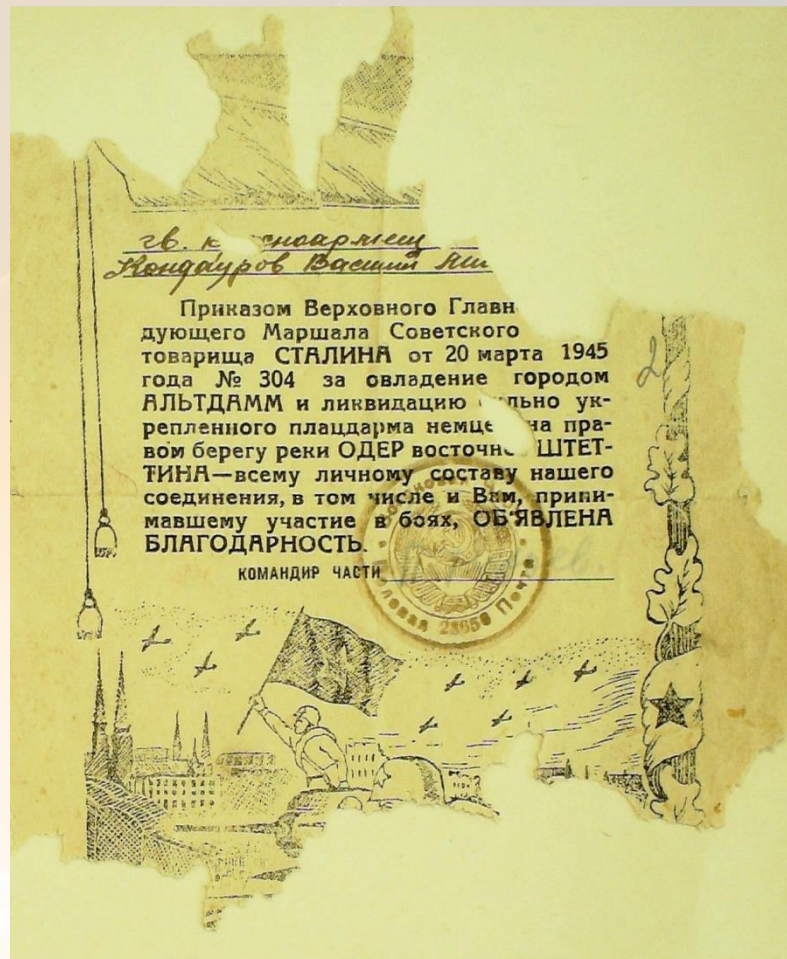 гв. к сноармеец
Кондауров Василий
Приказом Верховного Главн
дующего Маршала Советского
товарища СТАЛИНА от 20 марта 1945
года № 304 за овладение городом
АЛЬТДАММ и ликвидацию льно ук-
репленного плацдарма немце на пра-
вом берегу реки ОДЕР восточне ШТЕТ-
ТИНА—всему личному составу нашего
соединения, в том числе и Вам, прини-
мавшему участие в боях, ОБ'ЯВЛЕНА
БЛАГОДАРНОСТЬ.
КОМАНДИР ЧАСТИ
левая 28650 Почта
2